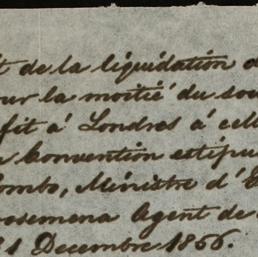 t de la liquidation d
ur la moitié du
fit á Londres á cel
Convention estipu
ombo, Ministre d'E
rosemena Agent de
31 Decembre 1866.